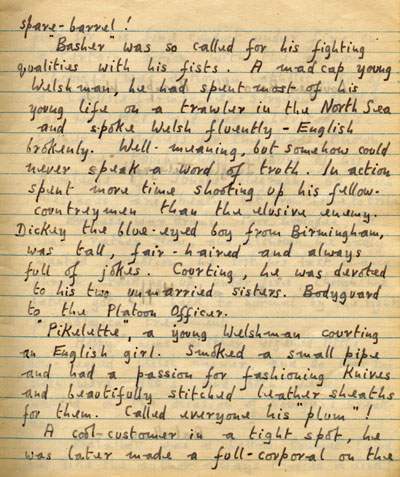 spare-barrel!
"Basher" was so called for his fighting
qualities with his fists. A madcap young
Welshman, he had spent most of his
young life on a trawler in the North Sea
and spoke Welsh fluently - English
brokenly. Well-meaning, but somehow could
never speak a word of truth. In action
spent more time shooting up his fellow-
countreymen than the elusive enemy.
Dickey the blue-eyed boy from Birmingham,
was tall, fair-haired and always
full of jokes. Courting, he was devoted
to his two unmarried sisters. Bodyguard
to the Platoon Officer.
"Pikelette", a young Welshman courting
an English girl. Smoked a small pipe
and had a passion for fashioning Knives
and beautifully stitched leather sheaths
for them. Called everyone his "plum"!
A cool-customer in a tight spot, he
was later made a full-corporal on the